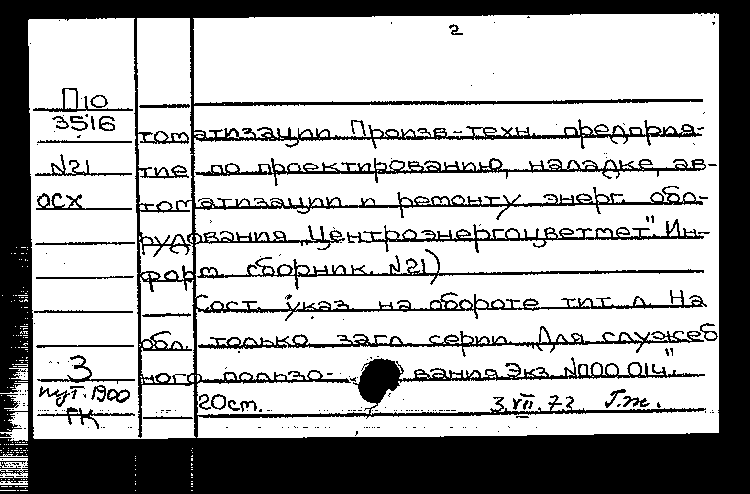 2
П10
3516
томатизации. Произв-техн. предприя-
N21
тие по проектированию, наладке, ав-
ОСХ
томатизации и ремонту энерг. обо-
рудования "Центроэнергоцветмет". Ин-
форм. сборник. N21)
Сост. указ. на обороте тит. л. На
обл. только загл. серии. "Для служеб
3
ного пользо- вания Экз. N000 014".
пут. 1900
20см. 3.VII.72 Г.т.
ГК